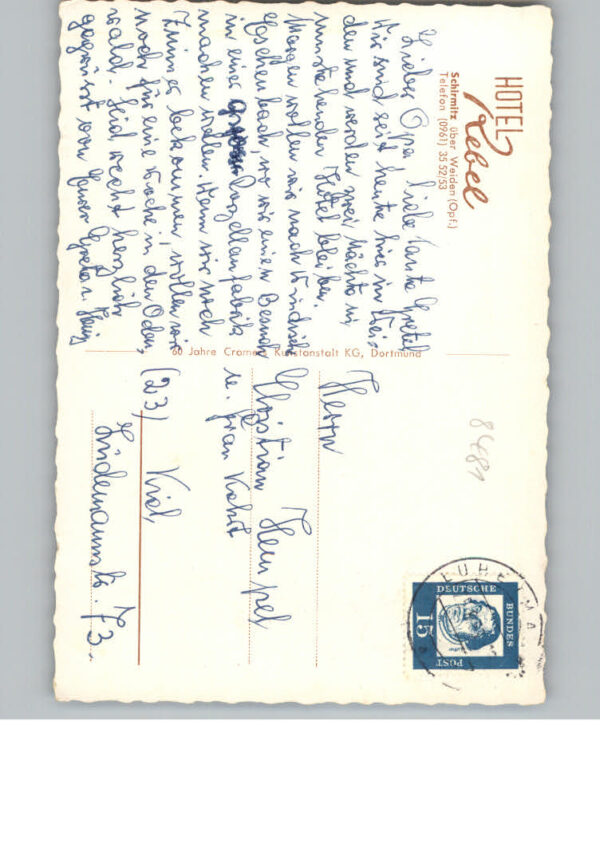 HOTEL
Rebel
Schirmitz über Weiden (Opf.)
Telefon (0961) 35 52/53
Lieber Opa, liebe Tante Gretel
Wir sind seit heute hier in Wei-
den und werden zwei Nächte in
umstehenden Hotel bleiben.
Morgen wollen wir nach Windisch-
eschenbach, wo wir einen Besuch
in einer Porzellanfabrik
machen wollen. Wenn wir noch
Zimmer bekommen, wollen wir
noch für eine Woche in den Oden-
wald. Seid recht herzlich
gegrüsst von Eurer Gretel u. Heinz
60 Jahre Cramers Kunstanstalt KG, Dortmund
Herrn
Christian Hempel
u. Frau
(23) Kiel,
Lüdemannstr. 73.
8481
DEUTSCHE
BUNDES
POST
15